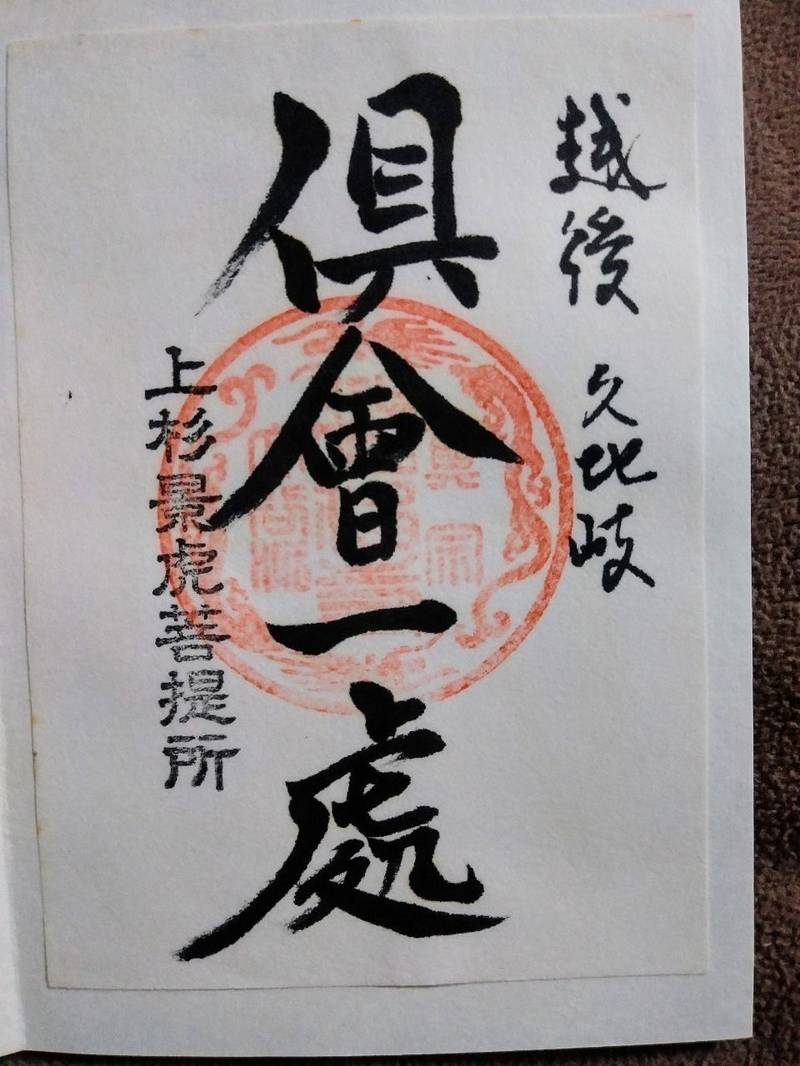 越後 久比岐
俱會一處
上杉景虎菩提所